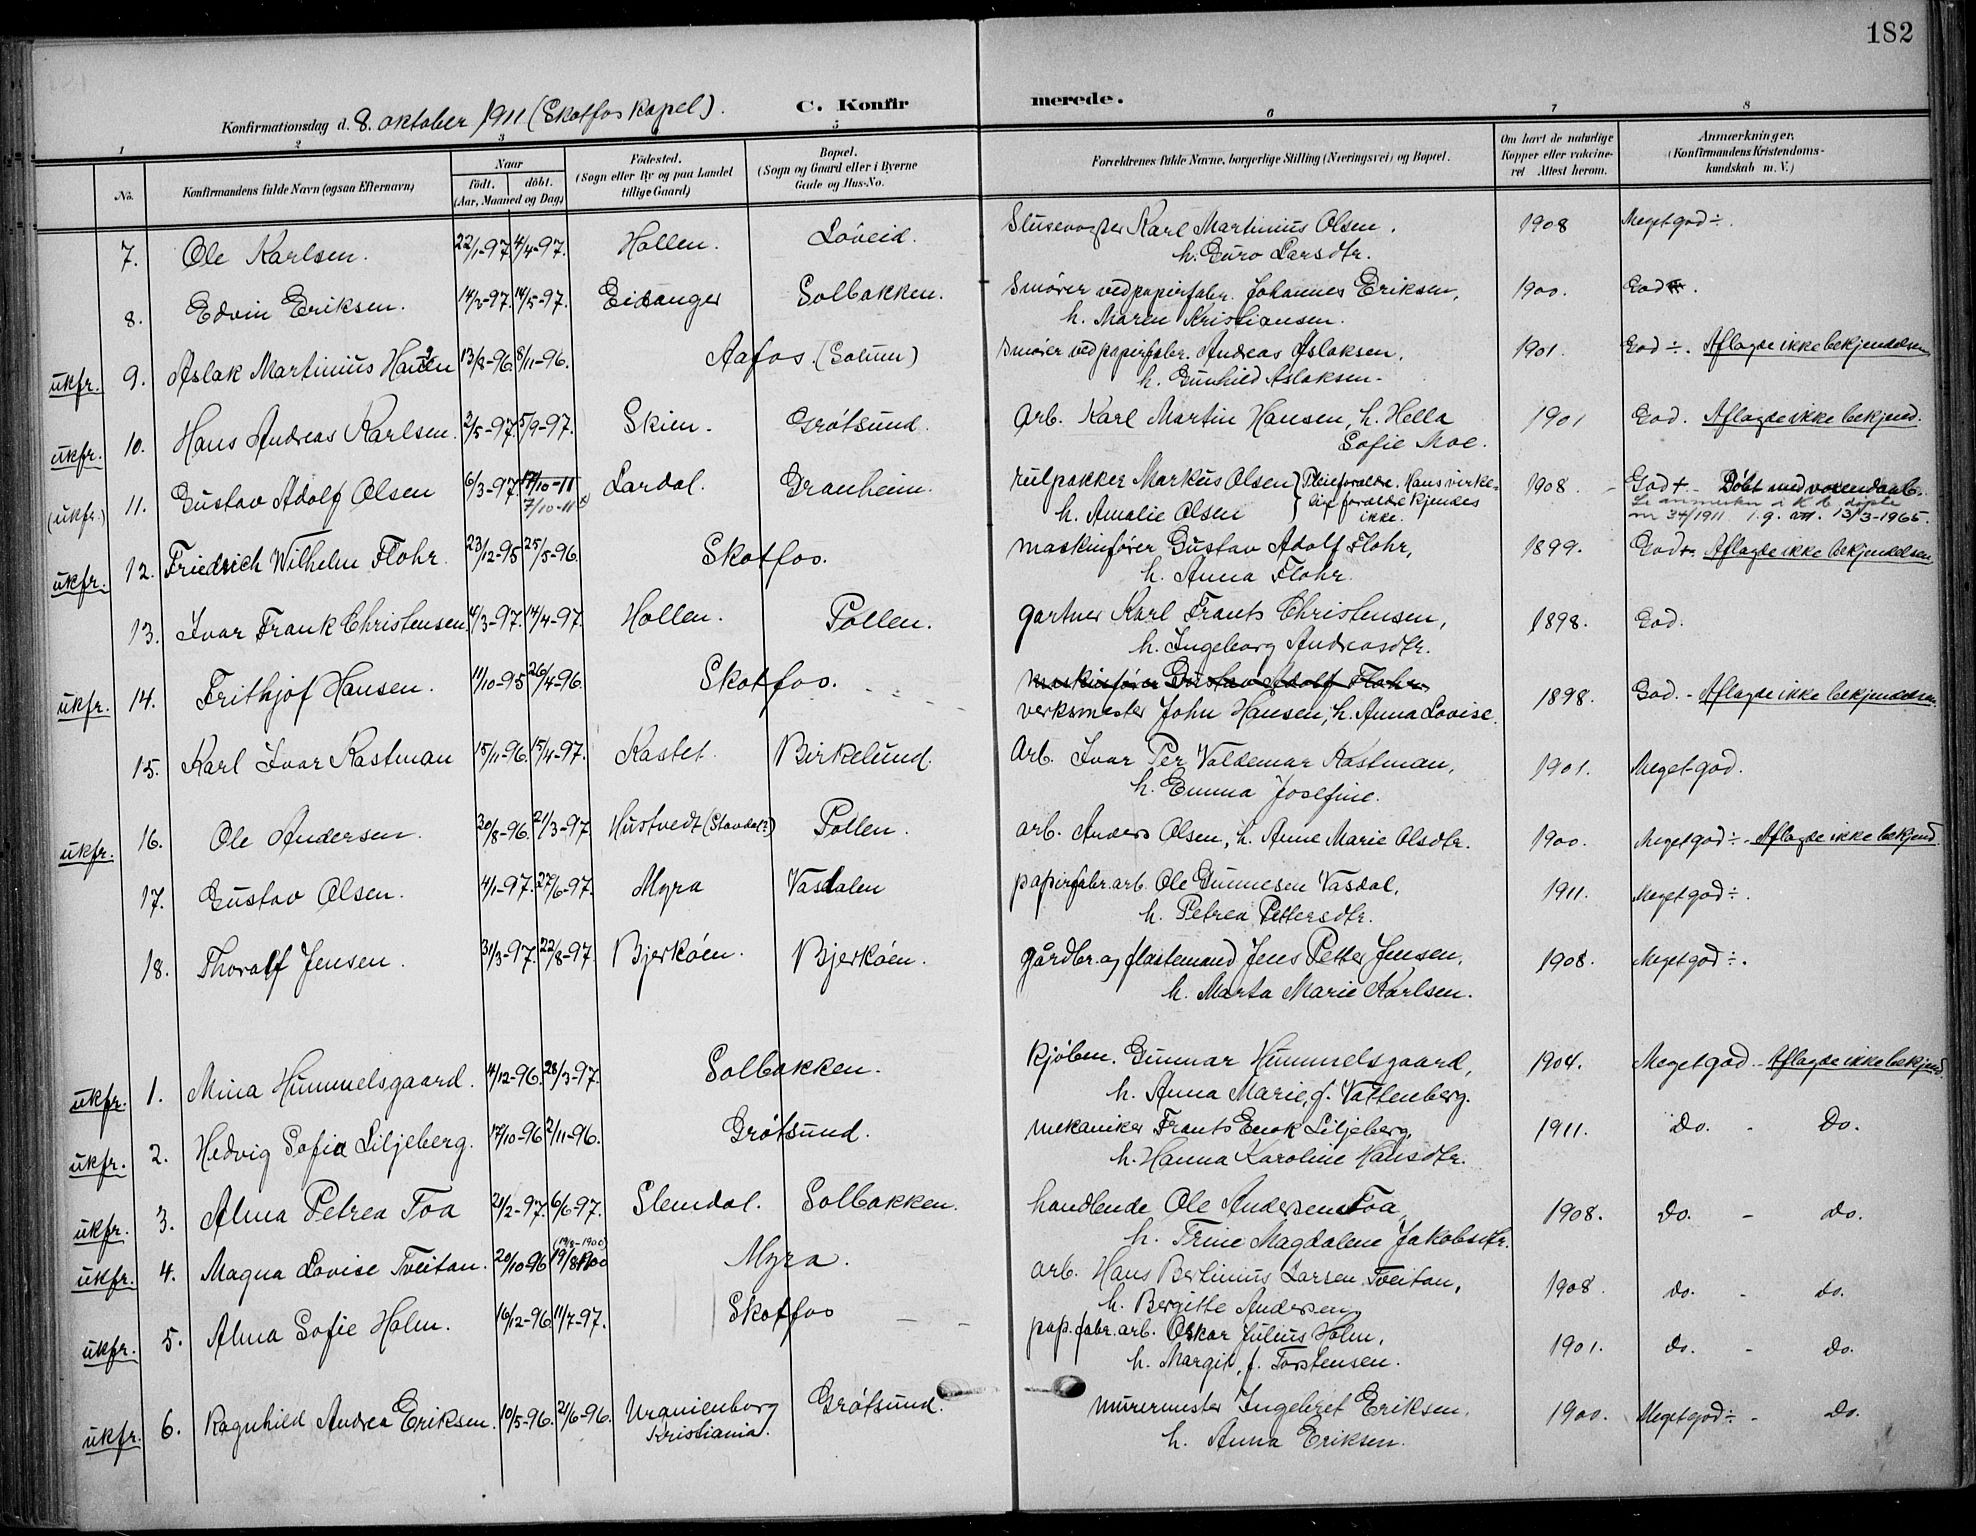 182
Konfirmationsdag d. 8. oktober 1911 (Skotfos kapel). C. Konfirmerede.
1 2 3 5 6 7 8
No. Konfirmandens fulde Navn (ogsaa Efternavn) Naar födt. döbt. (Aar, Maaned og Dag) Födested. (Sogn eller By og paa Landet tillige Gaard) Bopæl. (Sogn og Gaard eller i Byerne Gade og Hus-No. Forældrenes fulde Navne, borgerlige Stilling (Næringsvei) og Bopæl. Om havt de naturlige Kopper eller vakcineret Attest herom. Anmærkninger. (Konfirmandens Kristendomskundskab m. V.)
7. Ole Karlsen. 22/1-97. 4/4-97. Hollen. Löveid. Slusevogter Karl Martinius Olsen, 1908 Meget god ÷.
h. Guro Larsdtr.
8. Edvin Eriksen. 14/3-97. 14/5-97. Eidanger Solbakken. Smører ved papirfabr. Johannes Eriksen, 1900. God.
h. Maren Kristiansen.
ukfr. 9. Aslak Martinius Hansen 13/8-96. 8/11-96. Aafos. (Solum) Smører ved papirfabr. Andreas Aslaksen, 1901. God ÷. Aflagde ikke bekjendelsen
h. Gunhild Aslaksen.
ukfr. 10. Hans Andreas Karlsen. 2/5-97. 5/9-97. Skien. Grötsund. Arb. Karl Martin Hansen, h. Hella 1901 God. Aflagde ikke bekjend.
Sofie Moe.
(ukfr.) 11. Gustav Adolf Olsen 6/3-97. 17/10-11 Lardal. Granheim. rulpakker Markus Olsen Pleieforældre. Hans virke- 1908. God + Döbt med voxendaab.
7/10-11 h. Amalie Olsen lige forældre kjendes ikke.
nr 34/1911 13/3-1965.
ukfr. 12. Friedrich Wilhelm Flohr. 23/12-95 25/5-96. Skotfos. maskinförer Gustav Adolf Flohr, 1899. God. Aflagde ikke bekjendelsen
h. Anna Flohr.
13. Ivar Frank Christensen 4/3-97. 14/4-97. Hollen. Pollen. gartner Karl Frants Christensen, 1898. God.
h. Ingeborg Andreasdtr.
ukfr. 14. Frithjof Hansen. 11/10-95 26/4-96. Skotfos. maskinförer Gustav Adolf Flohr 1898. God. - Aflagde ikke bekjendelsen
verksmester John Hansen, h. Anna Lovise.
15. Karl Ivar Kastman 15/11-96. 15/4-97. Kastet. Birkelund. Arb. Ivar Per Valdemar Kastman, 1901. Meget god.
h. Emma Josefine.
ukfr. 16. Ole Andersen. 30/8-96. 21/3-97. Hustvedt (Slavdal?) Pollen. arb. Anders Olsen, h. Anne Marie Olsdtr. 1900. Meget god ÷. Aflagde ikke bekjend.
17. Gustav Olsen. 4/1-97. 27/6-97. Myra Vasdalen papirfabr. arb. Ole Gunnesen Vasdal, 1911. Meget god ÷.
h. Petrea Pettersdtr.
18. Thoralf Jensen. 31/3-97. 22/8-97. Bjerköen. Bjerköen. gårdbr. og flaatemand Jens Petter Jensen, 1908. Meget god ÷.
h. Marta Marie Karlsen.
ukfr. 1. Mina Hummelsgaard. 4/12-96. 28/3-97. Solbakken. kjöbm. Gunnar Hummelsgaard, 1904. Meget god - Aflagde ikke bekjend.
h. Anna Marie, f. Vattenberg.
ukfr. 2. Hedvig Sofia Liljeberg. 17/10-96 2/11-96. Grötsund. mekaniker Frants Enok Liljeberg, 1911. Do. - Do.
h. Hanna Karoline Hansdtr.
ukfr. 3. Alma Petrea Foa 21/2-97. 6/6-97. Slemdal. Solbakken. handlende Ole Andersen Foa, 1908. Do. - do.
h. Trine Magdalene Jakobsdtr.
(19/8-1900)
ukfr. 4. Magna Lovise Tveitan. 20/10-96 19/8-1900 Myra. arb. Hans Bertinius Larsen Tveitan, 1908. do. - do.
h. Bergitte Andersen
ukfr. 5. Alma Sofie Holm. 16/12-96 11/7-97. Skotfos pap.fabr. arb. Oskar Julius Holm, 1901. do. - do.
h. Margit, f. Torstensen.
ukfr. 6. Ragnhild Andrea Eriksen. 10/5-96. 21/6-96. Uranienborg Grötsund. murermester Ingebret Eriksen, 1900. Meget god ÷ - do.
Kristiania. h. Anna Eriksen.